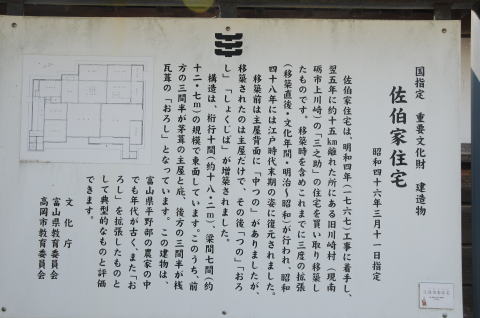 国指定 重要文化財 建造物
佐伯家住宅
昭和四十六年三月十一日指定
佐伯家住宅は、明和四年(一七六七)工事に着手し、
翌五年に約十五km離れた所にある旧川崎村(現南
砺市上川崎)の「三之助」の住宅を買い取り移築し
たものです。移築時を含めこれまでに三度の拡張
(移築直後・文化年間・明治~昭和)が行われ、昭和
四十八年には江戸時代末期の姿に復元されました。
移築前は主屋背面に「中つの」がありましたが、
移築されたのは主屋だけで、その後「つの」「おろ
し」「しょくじば」が増築されました。
構造は、桁行十間(約十八・二m)、梁間七間(約
十二・七m)の規模で東面しています。このうち、前
方の三間半が茅葺の主屋と庇、後方の三間半が桟
瓦葺の「おろし」となっています。この建物は、
富山県平野部の農家の中
でも年代が古く、また「お
ろし」を拡張したものと
して典型的なものと評価
できます。
文化庁
富山県教育委員会
高岡市教育委員会